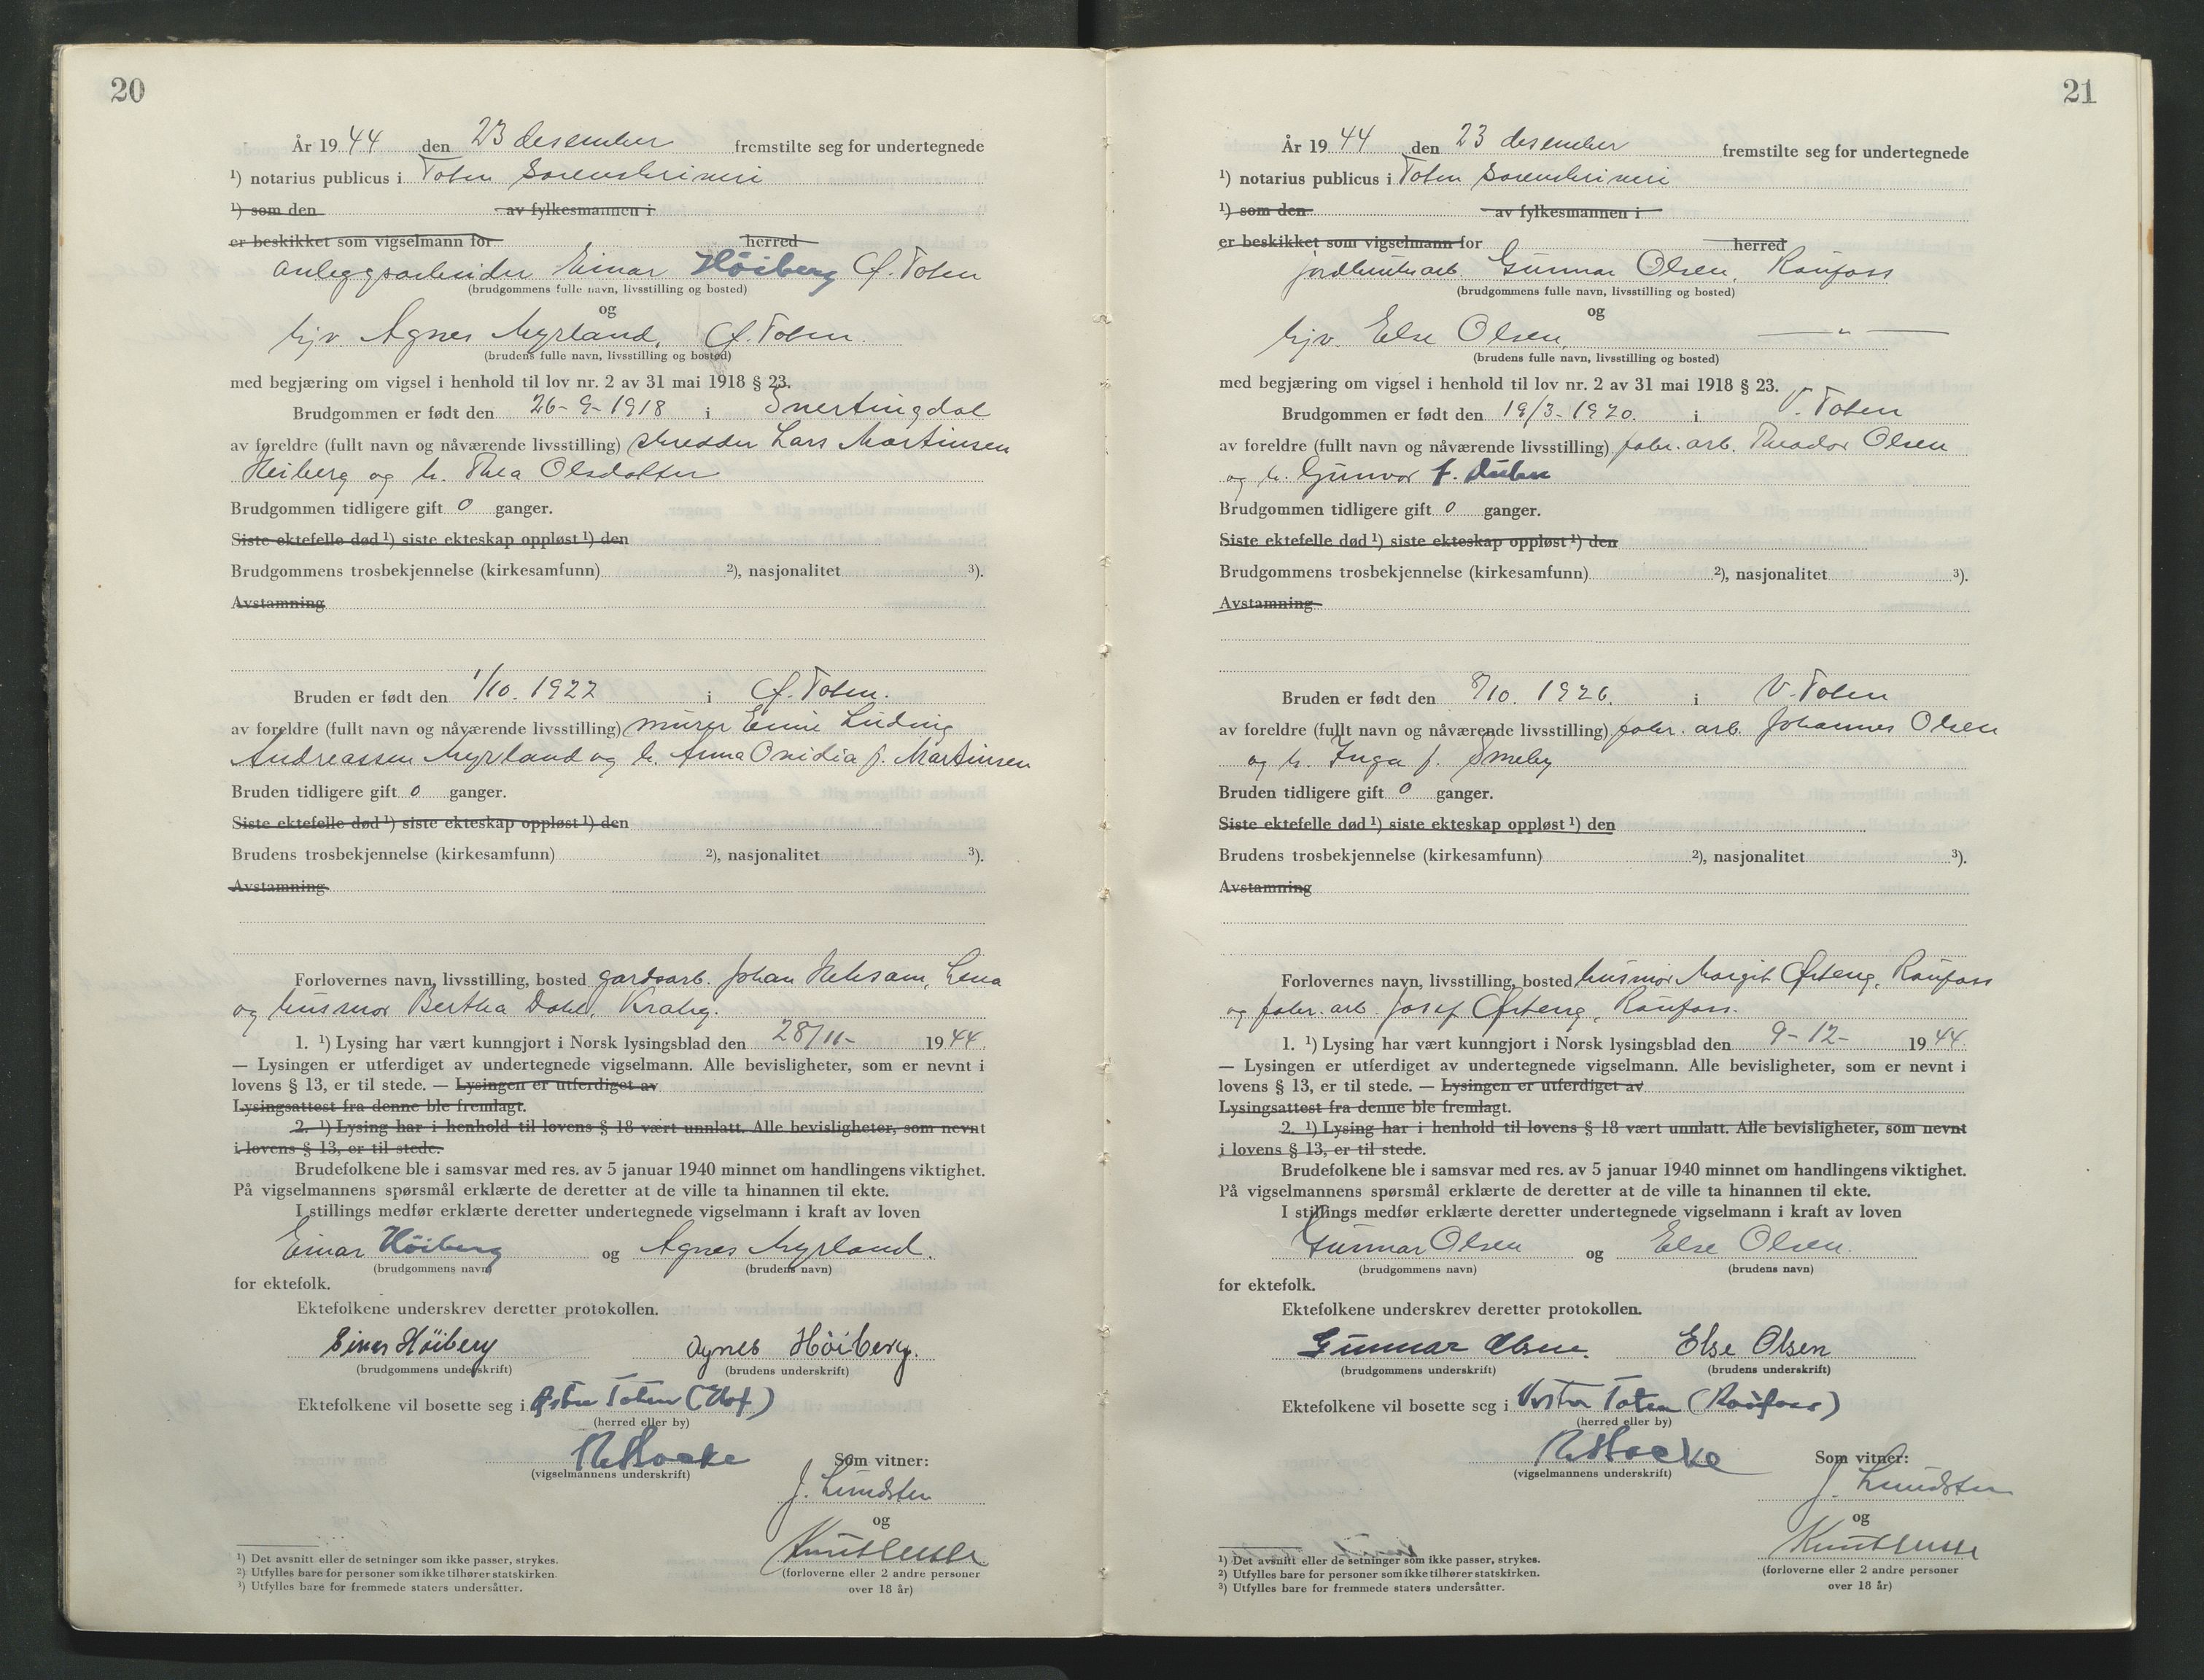 20
År 1944 den 23 desember fremstilte seg for undertegnede
¹) notarius publicus i Toten Sorenskriveri
¹) som den av fylkesmannen i
er beskikket som vigselmann for herred
anleggsarbeider Einar Höiberg Ø. Toten
(brudgommens fulle navn, livsstilling og bosted)
og
hjv. Agnes Myrland, Ø. Toten.
(brudens fulle navn, livsstilling og bosted)
med begjæring om vigsel i henhold til lov nr. 2 av 31 mai 1918 § 23.
Brudgommen er født den 26-9-1918 i Snertingdal
av foreldre (fullt navn og nåværende livsstilling) skredder Lars Martinsen
Heiberg og h. Thea Olsdatter
Brudgommen tidligere gift 0 ganger.
Siste ektefelle død ¹) siste ekteskap oppløst ¹) den
Brudgommens trosbekjennelse (kirkesamfunn) ²), nasjonalitet ³).
Avstamning
Bruden er født den 1/10. 1922 i Ø. Toten.
av foreldre (fullt navn og nåværende livsstilling) murer Ludvig
Andreassen Myrland og h. Anna Ovidia f. Martinsen
Bruden tidligere gift 0 ganger.
Siste ektefelle død ¹) siste ekteskap oppløst ¹) den
Brudens trosbekjennelse (kirkesamfunn) ²), nasjonalitet ³).
Avstamning
Forlovernes navn, livsstilling, bosted gardsarb. Johan Lena
og husmor Bertha Dahl, Kraby.
1. ¹) Lysing har vært kunngjort i Norsk lysingsblad den 28/11- 1944.
— Lysingen er utferdiget av undertegnede vigselmann. Alle bevisligheter, som er nevnt i
lovens § 13, er til stede. — Lysingen er utferdiget av
Lysingsattest fra denne ble fremlagt.
2. ¹) Lysing har i henhold til lovens § 18 vært unnlatt. Alle bevisligheter, som nevnt
i lovens § 13, er til stede.
Brudefolkene ble i samsvar med res. av 5 januar 1940 minnet om handlingens viktighet.
På vigselmannens spørsmål erklærte de deretter at de ville ta hinannen til ekte.
I stillings medfør erklærte deretter undertegnede vigselmann i kraft av loven
Einar Höiberg og Agnes Myrland.
(brudgommens navn) (brudens navn)
for ektefolk.
Ektefolkene underskrev deretter protokollen.
Einar Höiberg Agnes Höiberg.
(brudgommens underskrift) (brudens underskrift)
Ektefolkene vil bosette seg i Østre Toten (Hof)
(herred eller by)
Som vitner:
(vigselmannens underskrift)
J. Lundsten
og
(forloverne eller 2 andre personer
over 18 år)
¹) Det avsnitt eller de setninger som ikke passer, strykes.
²) Utfylles bare for personer som ikke tilhører statskirken.
³) Utfylles bare for fremmede staters undersåtter.
21
År 1944 den 23 desember fremstilte seg for undertegnede
¹) notarius publicus i Toten Sorenskriveri
¹) som den av fylkesmannen i
er beskikket som vigselmann for herred
jordbruksarb. Gunnar Olsen, Raufoss
(brudgommens fulle navn, livsstilling og bosted)
og
hjv. Else Olsen, — " —
(brudens fulle navn, livsstilling og bosted)
med begjæring om vigsel i henhold til lov nr. 2 av 31 mai 1918 § 23.
Brudgommen er født den 19/3-1920. i V. Toten
av foreldre (fullt navn og nåværende livsstilling) fabr. arb. Theodor Olsen
og h. Gunvor f.
Brudgommen tidligere gift 0 ganger.
Siste ektefelle død ¹) siste ekteskap oppløst ¹) den
Brudgommens trosbekjennelse (kirkesamfunn) ²), nasjonalitet ³).
Avstamning
Bruden er født den 8/10. 1926. i V. Toten
av foreldre (fullt navn og nåværende livsstilling) fabr. arb. Johannes Olsen
og h. Inga f. Smeby
Bruden tidligere gift 0 ganger.
Siste ektefelle død ¹) siste ekteskap oppløst ¹) den
Brudens trosbekjennelse (kirkesamfunn) ²), nasjonalitet ³).
Avstamning
Forlovernes navn, livsstilling, bosted husmor Margit Ørteng, Raufoss
og fabr. arb. Josef Ørteng, Raufoss.
1. ¹) Lysing har vært kunngjort i Norsk lysingsblad den 9-12- 1944.
— Lysingen er utferdiget av undertegnede vigselmann. Alle bevisligheter, som er nevnt i
lovens § 13, er til stede. — Lysingen er utferdiget av
Lysingsattest fra denne ble fremlagt.
2. ¹) Lysing har i henhold til lovens § 18 vært unnlatt. Alle bevisligheter, som nevnt
i lovens § 13, er til stede.
Brudefolkene ble i samsvar med res. av 5 januar 1940 minnet om handlingens viktighet.
På vigselmannens spørsmål erklærte de deretter at de ville ta hinannen til ekte.
I stillings medfør erklærte deretter undertegnede vigselmann i kraft av loven
Gunnar Olsen og Else Olsen.
(brudgommens navn) (brudens navn)
for ektefolk.
Ektefolkene underskrev deretter protokollen.
Gunnar Olsen. Else Olsen
(brudgommens underskrift) (brudens underskrift)
Ektefolkene vil bosette seg i Vestre Toten (Raufoss)
(herred eller by)
Som vitner:
(vigselmannens underskrift)
J. Lundsten
og
(forloverne eller 2 andre personer
over 18 år)
¹) Det avsnitt eller de setninger som ikke passer, strykes.
²) Utfylles bare for personer som ikke tilhører statskirken.
³) Utfylles bare for fremmede staters undersåtter.